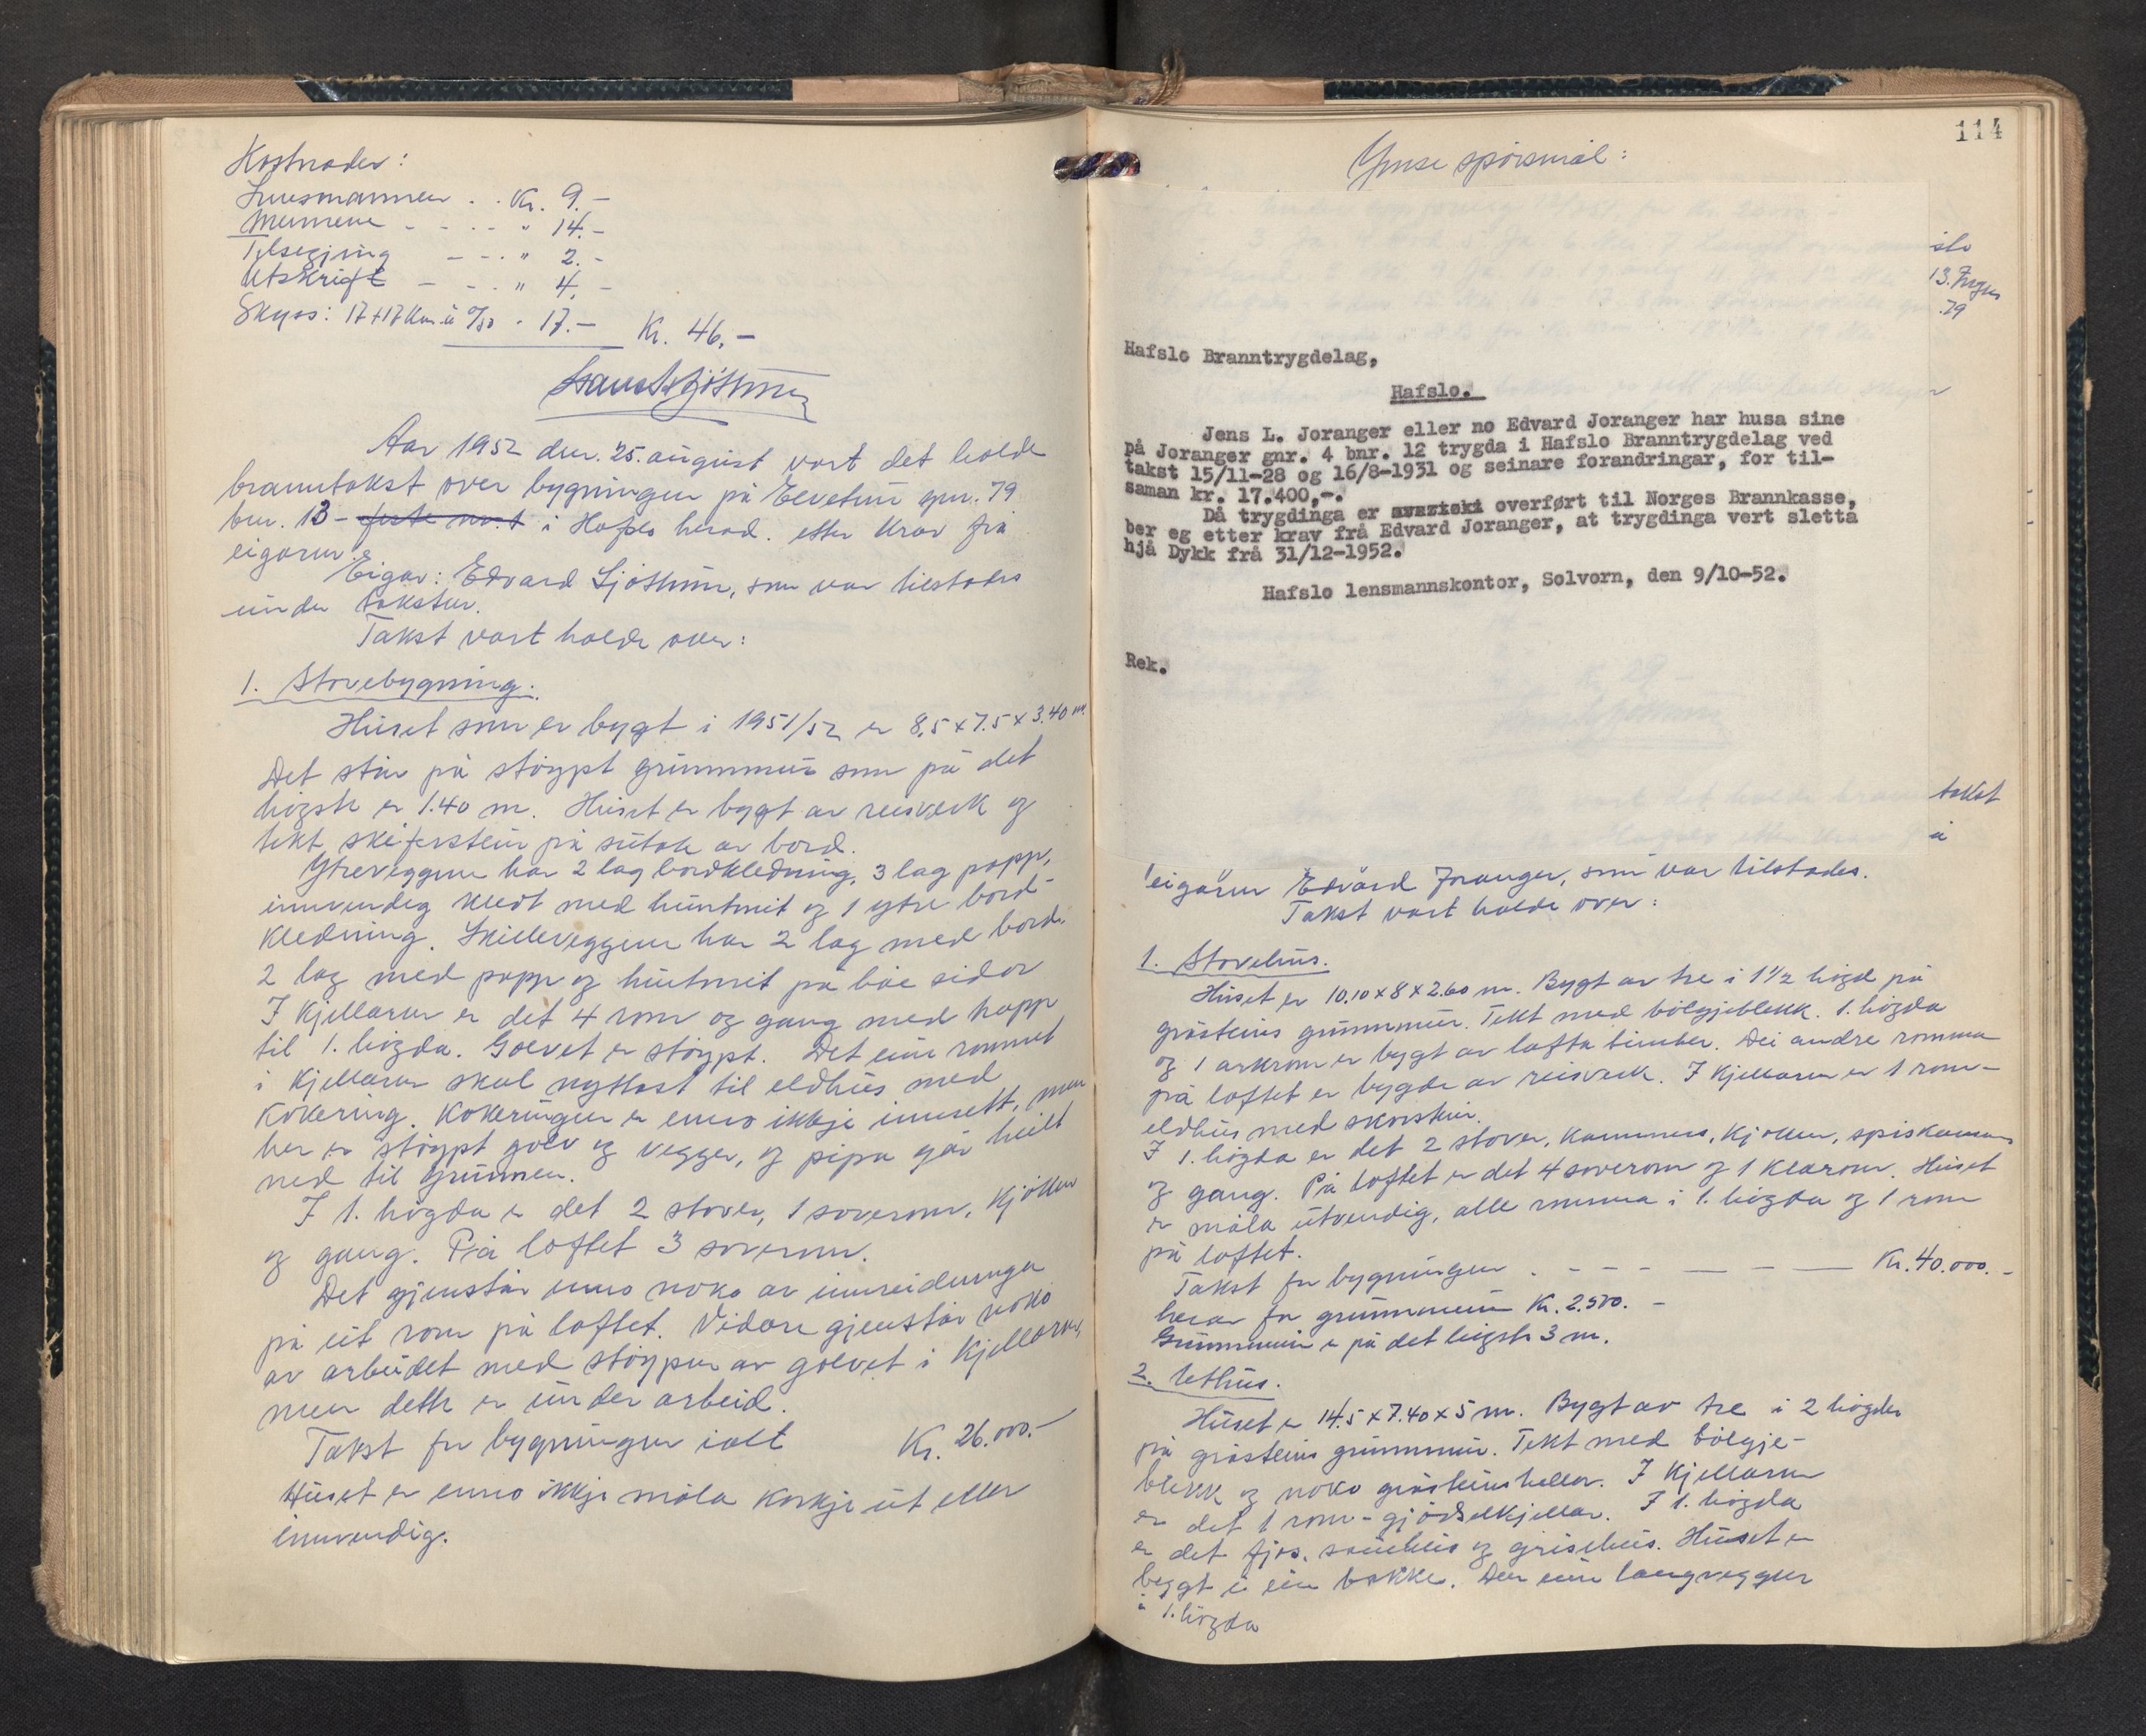 Kostnader:
Lensmannen . . Kr. 9.-
Mennene - - - - " 14.-
Tilsegjing - - - " 2.-
Utskrift - - - " 4.-
Skyss: 17+17 Km. à 0/50 " 17.- Kr. 46.-
Aar 1952 den 25. august vart det halde
branntakst over bygningen på Elvetun gnr. 79
bnr. 13 - feste nr. 1 i Hafslo herad. etter krav frå
eigaren.
Eigar: Edvard Sjøtun, som var tilstades
under taksten.
Takst vart halde over:
1. Stovebygning:
Huset som er bygt i 1951/52 er 8,5 x 7.5 x 3.40 m.
Det står på støypt grunnmur som på det
høgste er 1.40 m. Huset er bygt av reisverk og
tekt skiferstein på sutak av bord.
Ytreveggene har 2 lag bordkledning, 3 lag papp,
innvendig kledt med huntonit og 1 ytre bord-
kledning. Skilleveggene har 2 lag med bord.
2 lag med papp og huntonit på båe sidor
I Kjellaren er det 4 rom og gang med trapp
til 1. høgda. Golvet er støypt. Det eine rommet
i kjellaren skal nyttast til eldhus med
kokering. Kokeringen er enno ikkje innsett, men
her er støypt golv og vegger, og pipa går heilt
ned til grunnen.
I 1. høgda er det 2 stover, 1 soverom, kjøken
og gang. På loftet 3 soverom.
Det gjenstår enno noko av innreidninga
på eit rom på loftet. Vidare gjenstår noko
av arbeidet med støypen av golvet i kjellaren,
men dette er under arbeid.
Takst for bygningen ialt Kr. 26.000.-
Huset er enno ikkje måla korkje ut eller
innvendig.
114
Ymse spörsmål:
slo
13. Jranger
79
Hafslo Branntrygdelag,
Hafslo.
Jens L. Joranger eller no Edvard Joranger har husa sine
på Joranger gnr. 4 bnr. 12 trygda i Hafslo Branntrygdelag ved
takst 15/11-28 og 16/8-1931 og seinare forandringar, for til-
saman kr. 17.400,-.
Då trygdinga er overført til Norges Brannkasse,
ber eg etter krav frå Edvard Joranger, at trygdinga vert sletta
hjå Dykk frå 31/12-1952.
Hafslo lensmannskontor, Solvorn, den 9/10-52.
Rek.
takst
å
eigaren Edvard Joranger, som var tilstades.
Takst vart halde over:
1. Stovehus.
Huset er 10.10 x 8 x 2.60 m. Bygt av tre i 1 1/2 høgd på
gråsteins grunnmur. Tekt med bölgjeblekk. 1. høgda
og 1 arkrom er bygt av lafta timber. Dei andre romma
på loftet er bygde av reisverk. I kjellaren er 1 rom -
eldhus med skorstein.
I 1. høgda er det 2 stover, kammers, kjøken, spiskammers
og gang. På loftet er det 4 soverom og 1 klærom. Huset
er måla utvendig, alle romma i 1. høgda og 1 rom
på loftet.
Takst for bygningen . - - - - - - Kr. 40.000.-
herav for grunnmuren Kr. 2.500.-
Grunnmuren er på det høgste 3 m.
2. Uthus.
Huset er 14.5 x 7.40 x 5 m. Bygt av tre i 2 høgder
på gråsteins grunnmur. Tekt med bölgje-
blekk og noko gråsteinsheller. I Kjellaren
er det 1 rom - gjødselkjellar. I 1. høgda
er det fjos, sauehus og grisehus. Huset er
bygt i ein bakke. Den eine langveggen
i 1. høgda